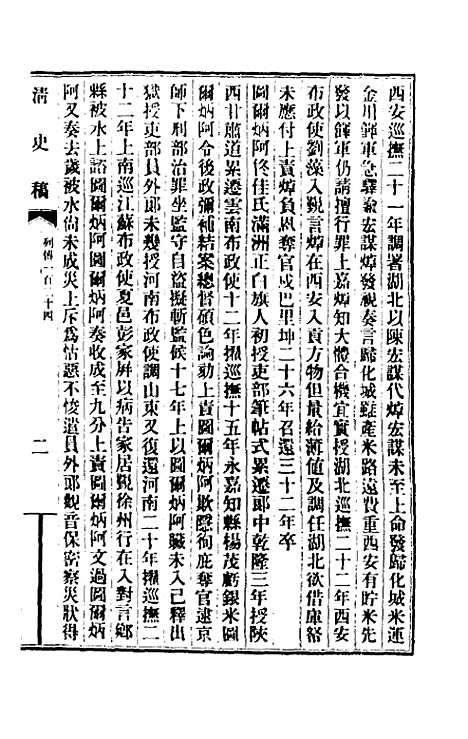 西安巡撫二十一年調署湖北以陳宏謀代焯宏謀未至上命發歸化城米運
金川餫軍急驛諭宏謀焯發視奏言歸化城雖產米路遠費重西安有貯米先
發以餫軍仍請擅行罪上嘉焯知大體合機宜實授湖北巡撫二十二年西安
布政使劉藻入覲言焯在西安入貢方物但量給薄值及調任湖北欲借庫帑
未應付上責焯負恩奪官戍巴里坤二十六年召還三十二年卒
圖爾炳阿佟佳氏滿洲正白旗人初授吏部筆帖式累遷郎中乾隆三年授陝
西甘肅道累遷雲南布政使十二年擢巡撫十五年永嘉知縣楊茂虧銀米圖
爾炳阿令後政彌補結案總督碩色論劾上責圖爾炳阿欺隱徇庇奪官逮京
師下刑部治罪坐監守自盜擬斬監候十七年上以圖爾炳阿贓未入己釋出
獄授吏部員外郎未幾授河南布政使調山東又復還河南二十年擢巡撫二
十二年上南巡江蘇布政使夏邑彭家屏以病告家居覲徐州行在入對言鄉
縣被水上諮圖爾炳阿圖爾炳阿奏收成至九分上責圖爾炳阿文過圖爾炳
阿又奏去歲被水尚未成災上斥為怙惡不悛遣員外郎觀音保密察災狀得
清史稿
列傳一百二十四
二